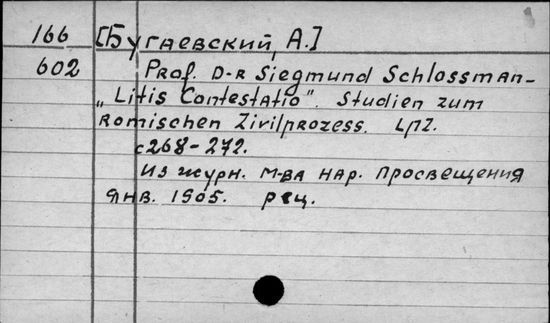 166 [Бугаевский, А.]
602 Prof. D-r Siegmund Schlossman-
„Litis Contestatio". Studien zum
Romischen Zivilprozess. Lpz.
с 268-272.
Из журн. м-ва нар. просвещения
Янв. 1905. рец.